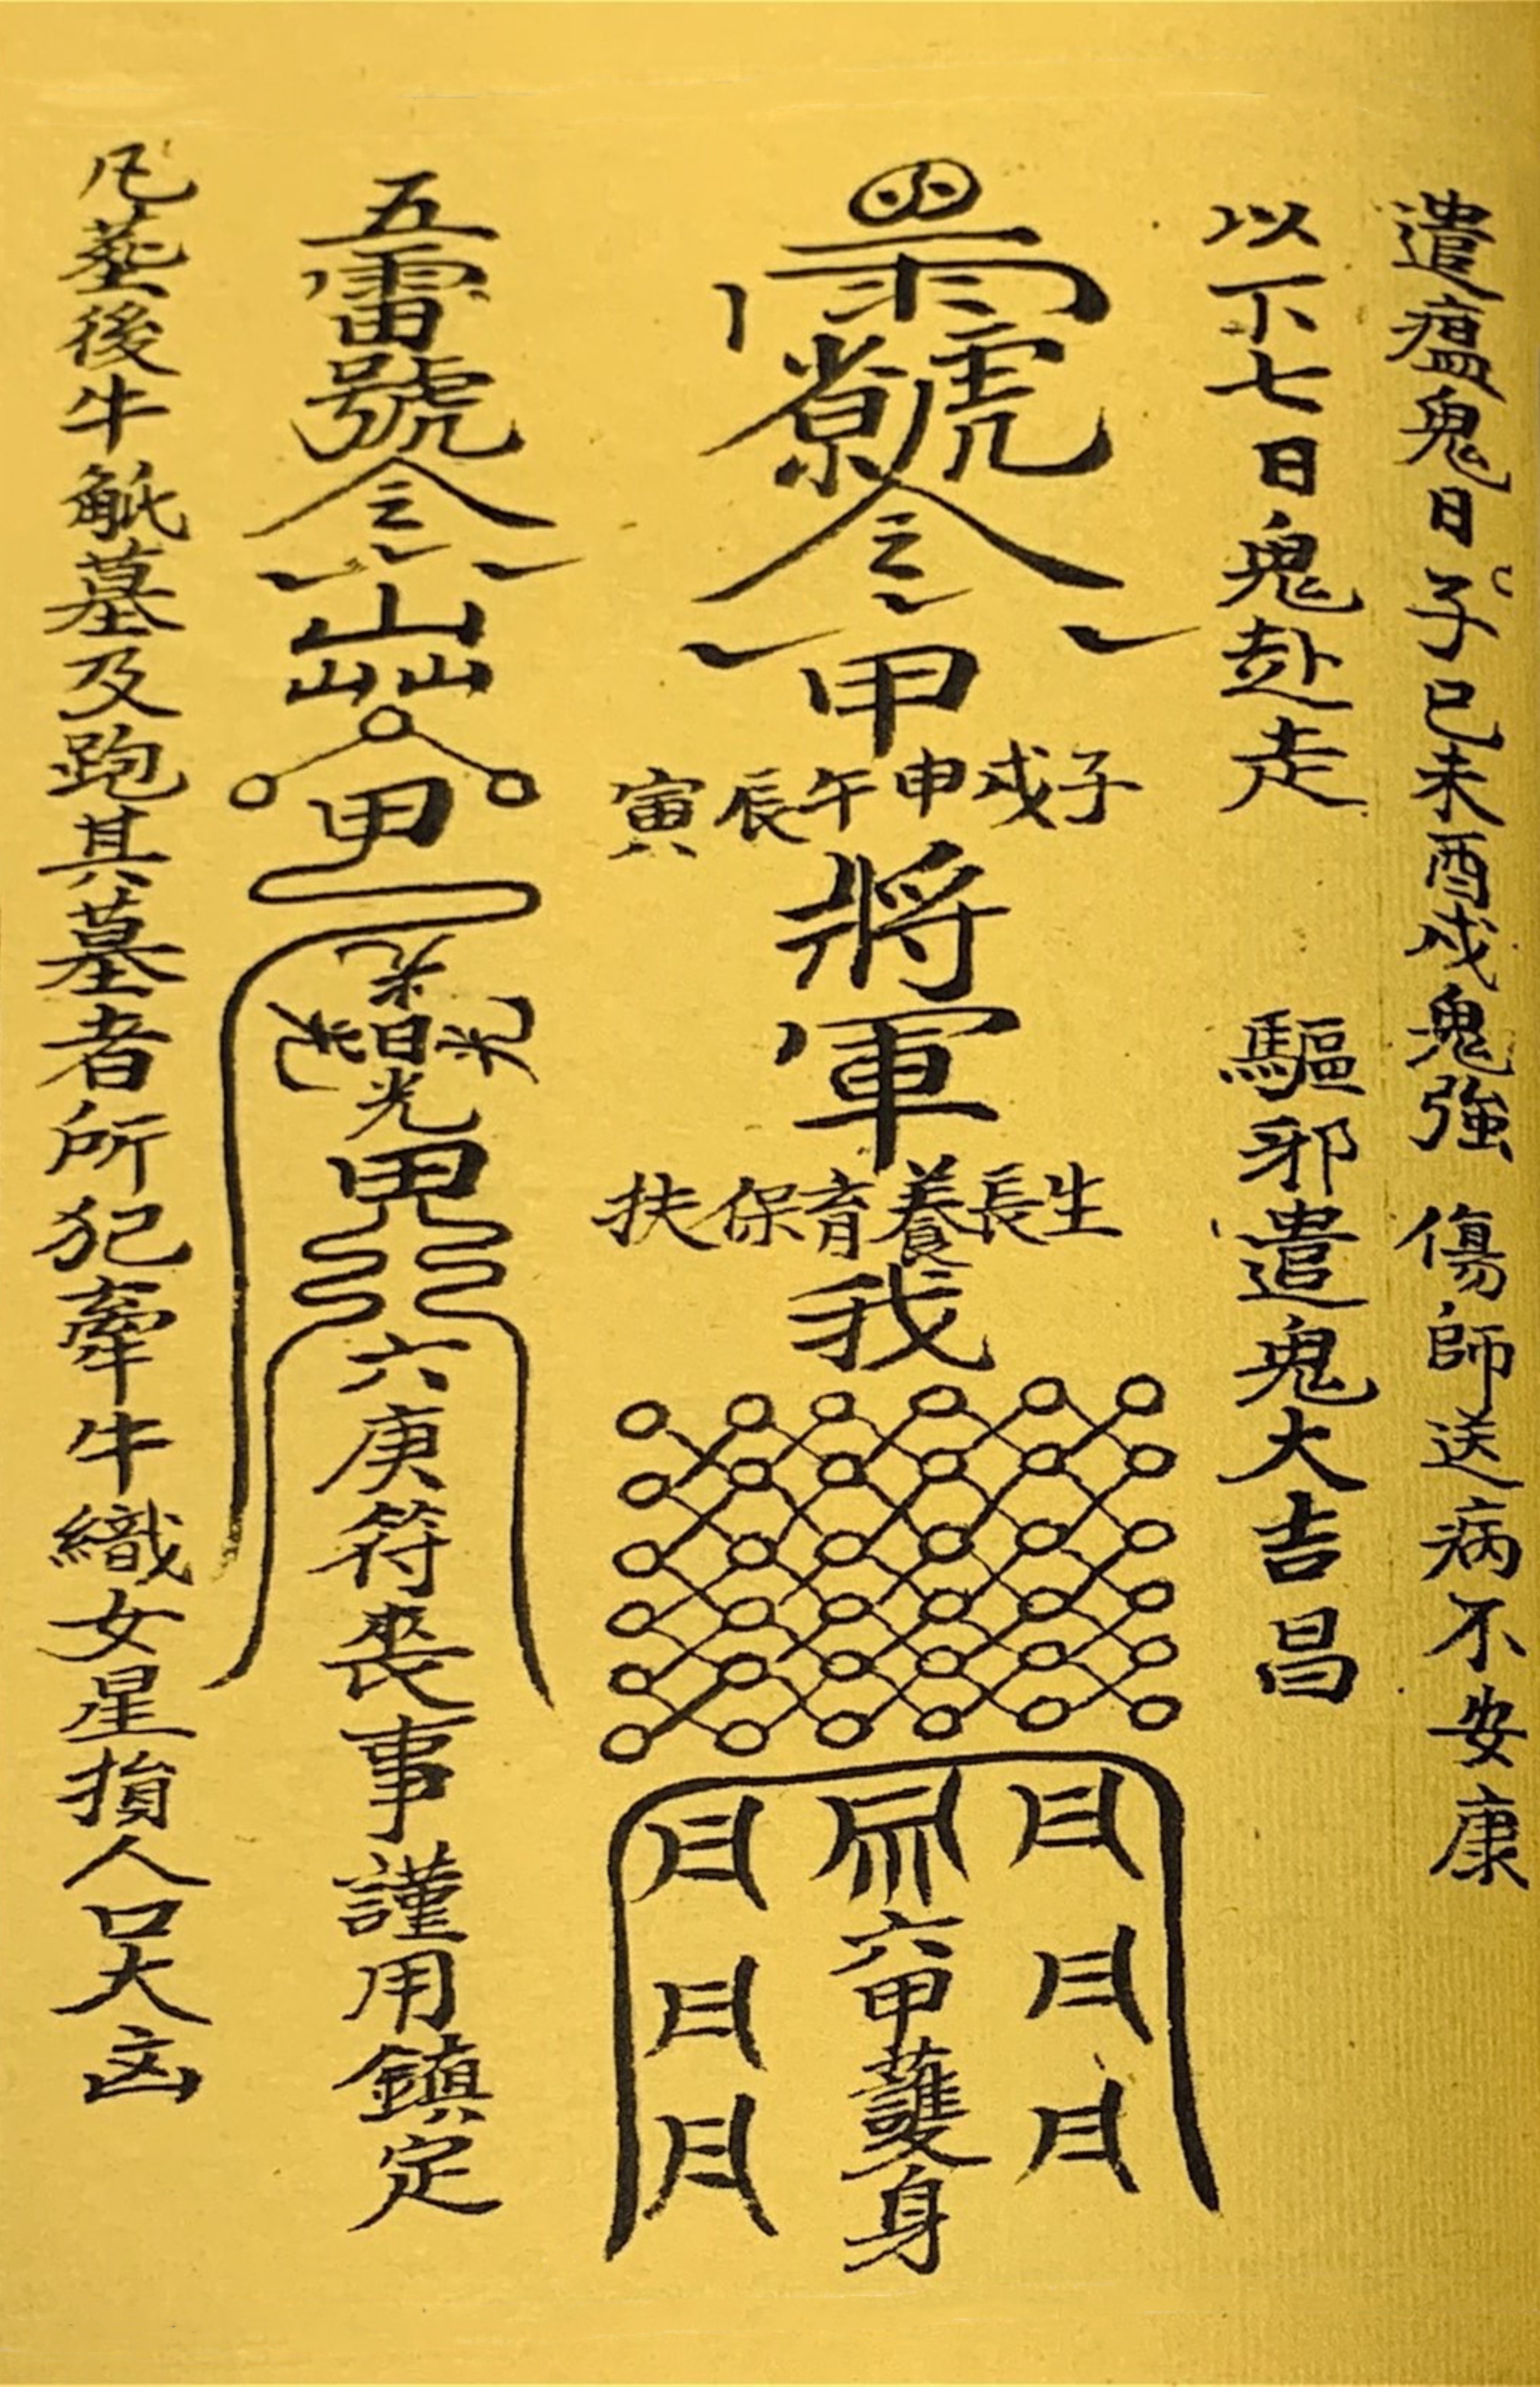 遣瘟鬼日子巳未酉戌鬼強 傷師送病不安康
以下七日鬼赴走 驅邪遣鬼大吉昌
令
甲
子戌申午辰寅
將軍
生長養育保扶
我
六甲護身
五雷號令
甲
日光
六庚符喪事謹用鎮定
凡葬後牛觝墓及跑其墓者所犯牽牛織女星損人口大凶